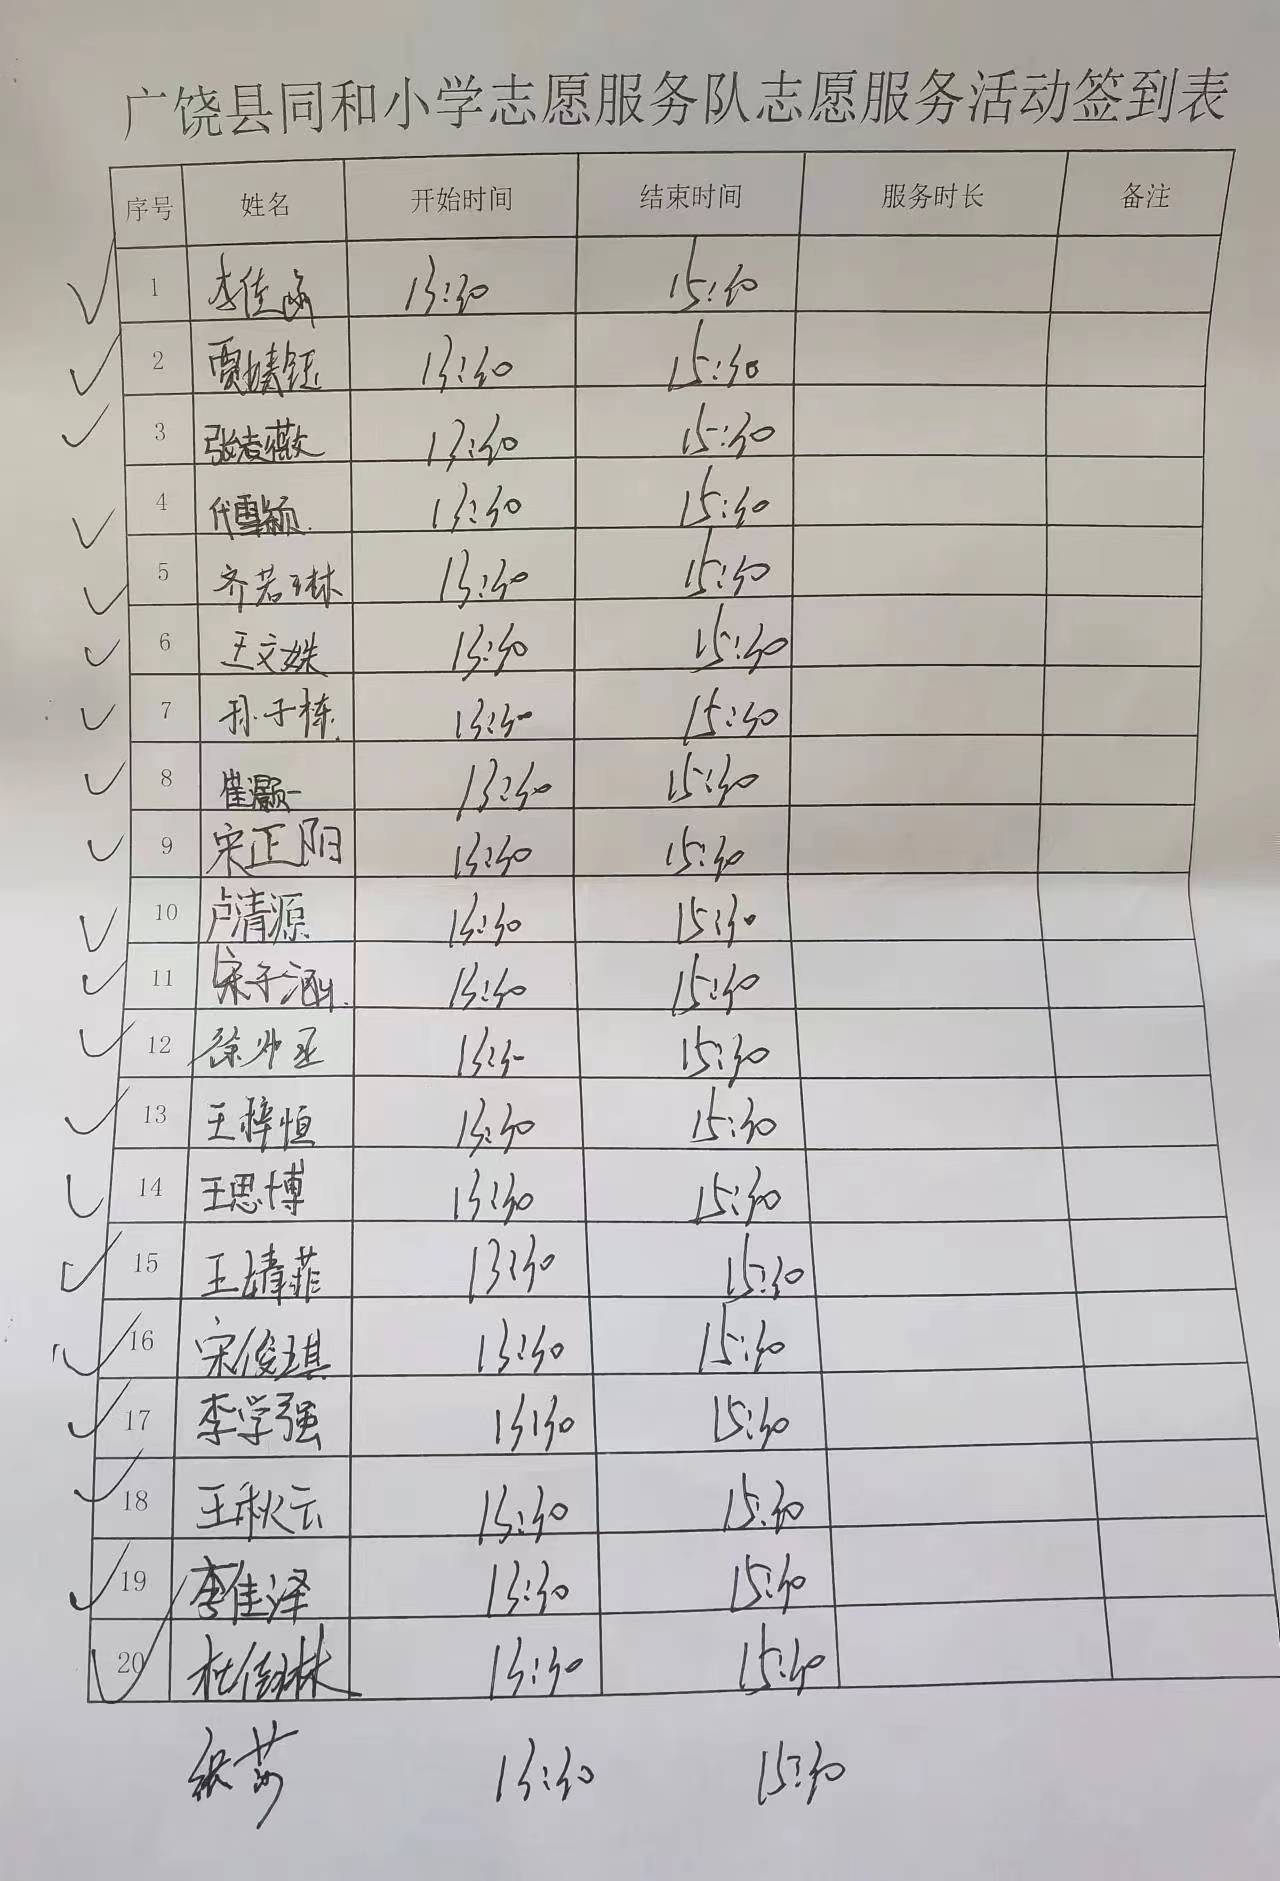 广饶县同和小学志愿服务队志愿服务活动签到表
序号 姓名 开始时间 结束时间 服务时长 备注
1 李佳函 13:30 15:30
2 贾婧钰 13:30 15:30
3 张凌薇 13:30 15:30
4 代雪颖 13:30 15:30
5 齐若琳 13:30 15:30
6 王文姝 13:30 15:30
7 孙子栋 13:30 15:30
8 崔灏一 13:30 15:30
9 宋正阳 13:30 15:30
10 卢清源 13:30 15:30
11 宋子涵 13:30 15:30
12 徐 13:3 15:30
13 王梓恒 13:30 15:30
14 王思博 13:30 15:30
15 王婧菲 13:30 15:30
16 宋俊琪 13:30 15:30
17 李学强 13:30 15:30
18 王秋云 13:30 15:30
19 李佳泽 13:30 15:30
20 杜 13:30 15:30
张莎 13:30 15:30